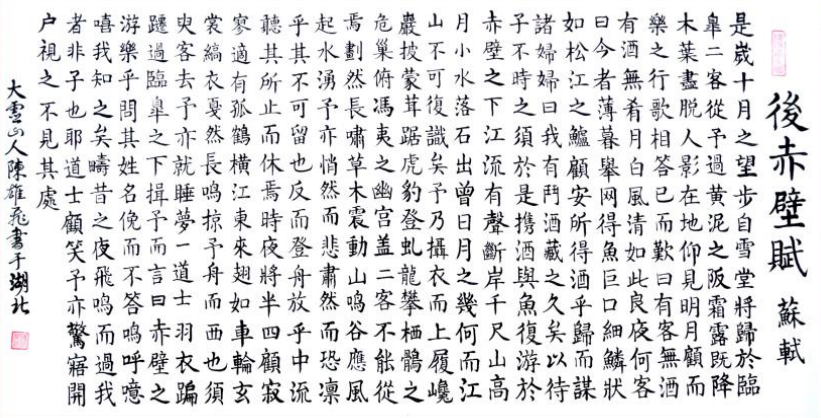 後赤壁賦 蘇軾
是歲十月之望步自雪堂將歸於臨
皐二客從予過黃泥之阪霜露既降
木葉盡脫人影在地仰見明月顧而
樂之行歌相答已而歎曰有客無酒
有酒無肴月白風清如此良夜何客
曰今者薄暮舉网得魚巨口細鱗狀
如松江之鱸顧安所得酒乎歸而謀
諸婦婦曰我有鬥酒藏之久矣以待
子不時之須於是攜酒與魚復游於
赤壁之下江流有聲斷岸千尺山高
月小水落石出曾日月之幾何而江
山不可復識矣予乃攝衣而上履巉
巖披蒙茸踞虎豹登虬龍攀栖鶻之
危巢俯馮夷之幽宮盖二客不能從
焉劃然長嘯草木震動山鳴谷應風
起水湧予亦悄然而悲肅然而恐凛
乎其不可留也反而登舟放乎中流
聽其所止而休焉時夜將半四顧寂
寥適有孤鶴橫江東來翅如車輪玄
裳縞衣戛然長鳴掠予舟而西也須
臾客去予亦就睡夢一道士羽衣蹁
躚過臨皐之下揖予而言曰赤壁之
游樂乎問其姓名俛而不答嗚呼噫
嘻我知之矣疇昔之夜飛鳴而過我
者非子也耶道士顧笑予亦驚寤開
户視之不見其處
大雲山人陳雄飛書于湖北